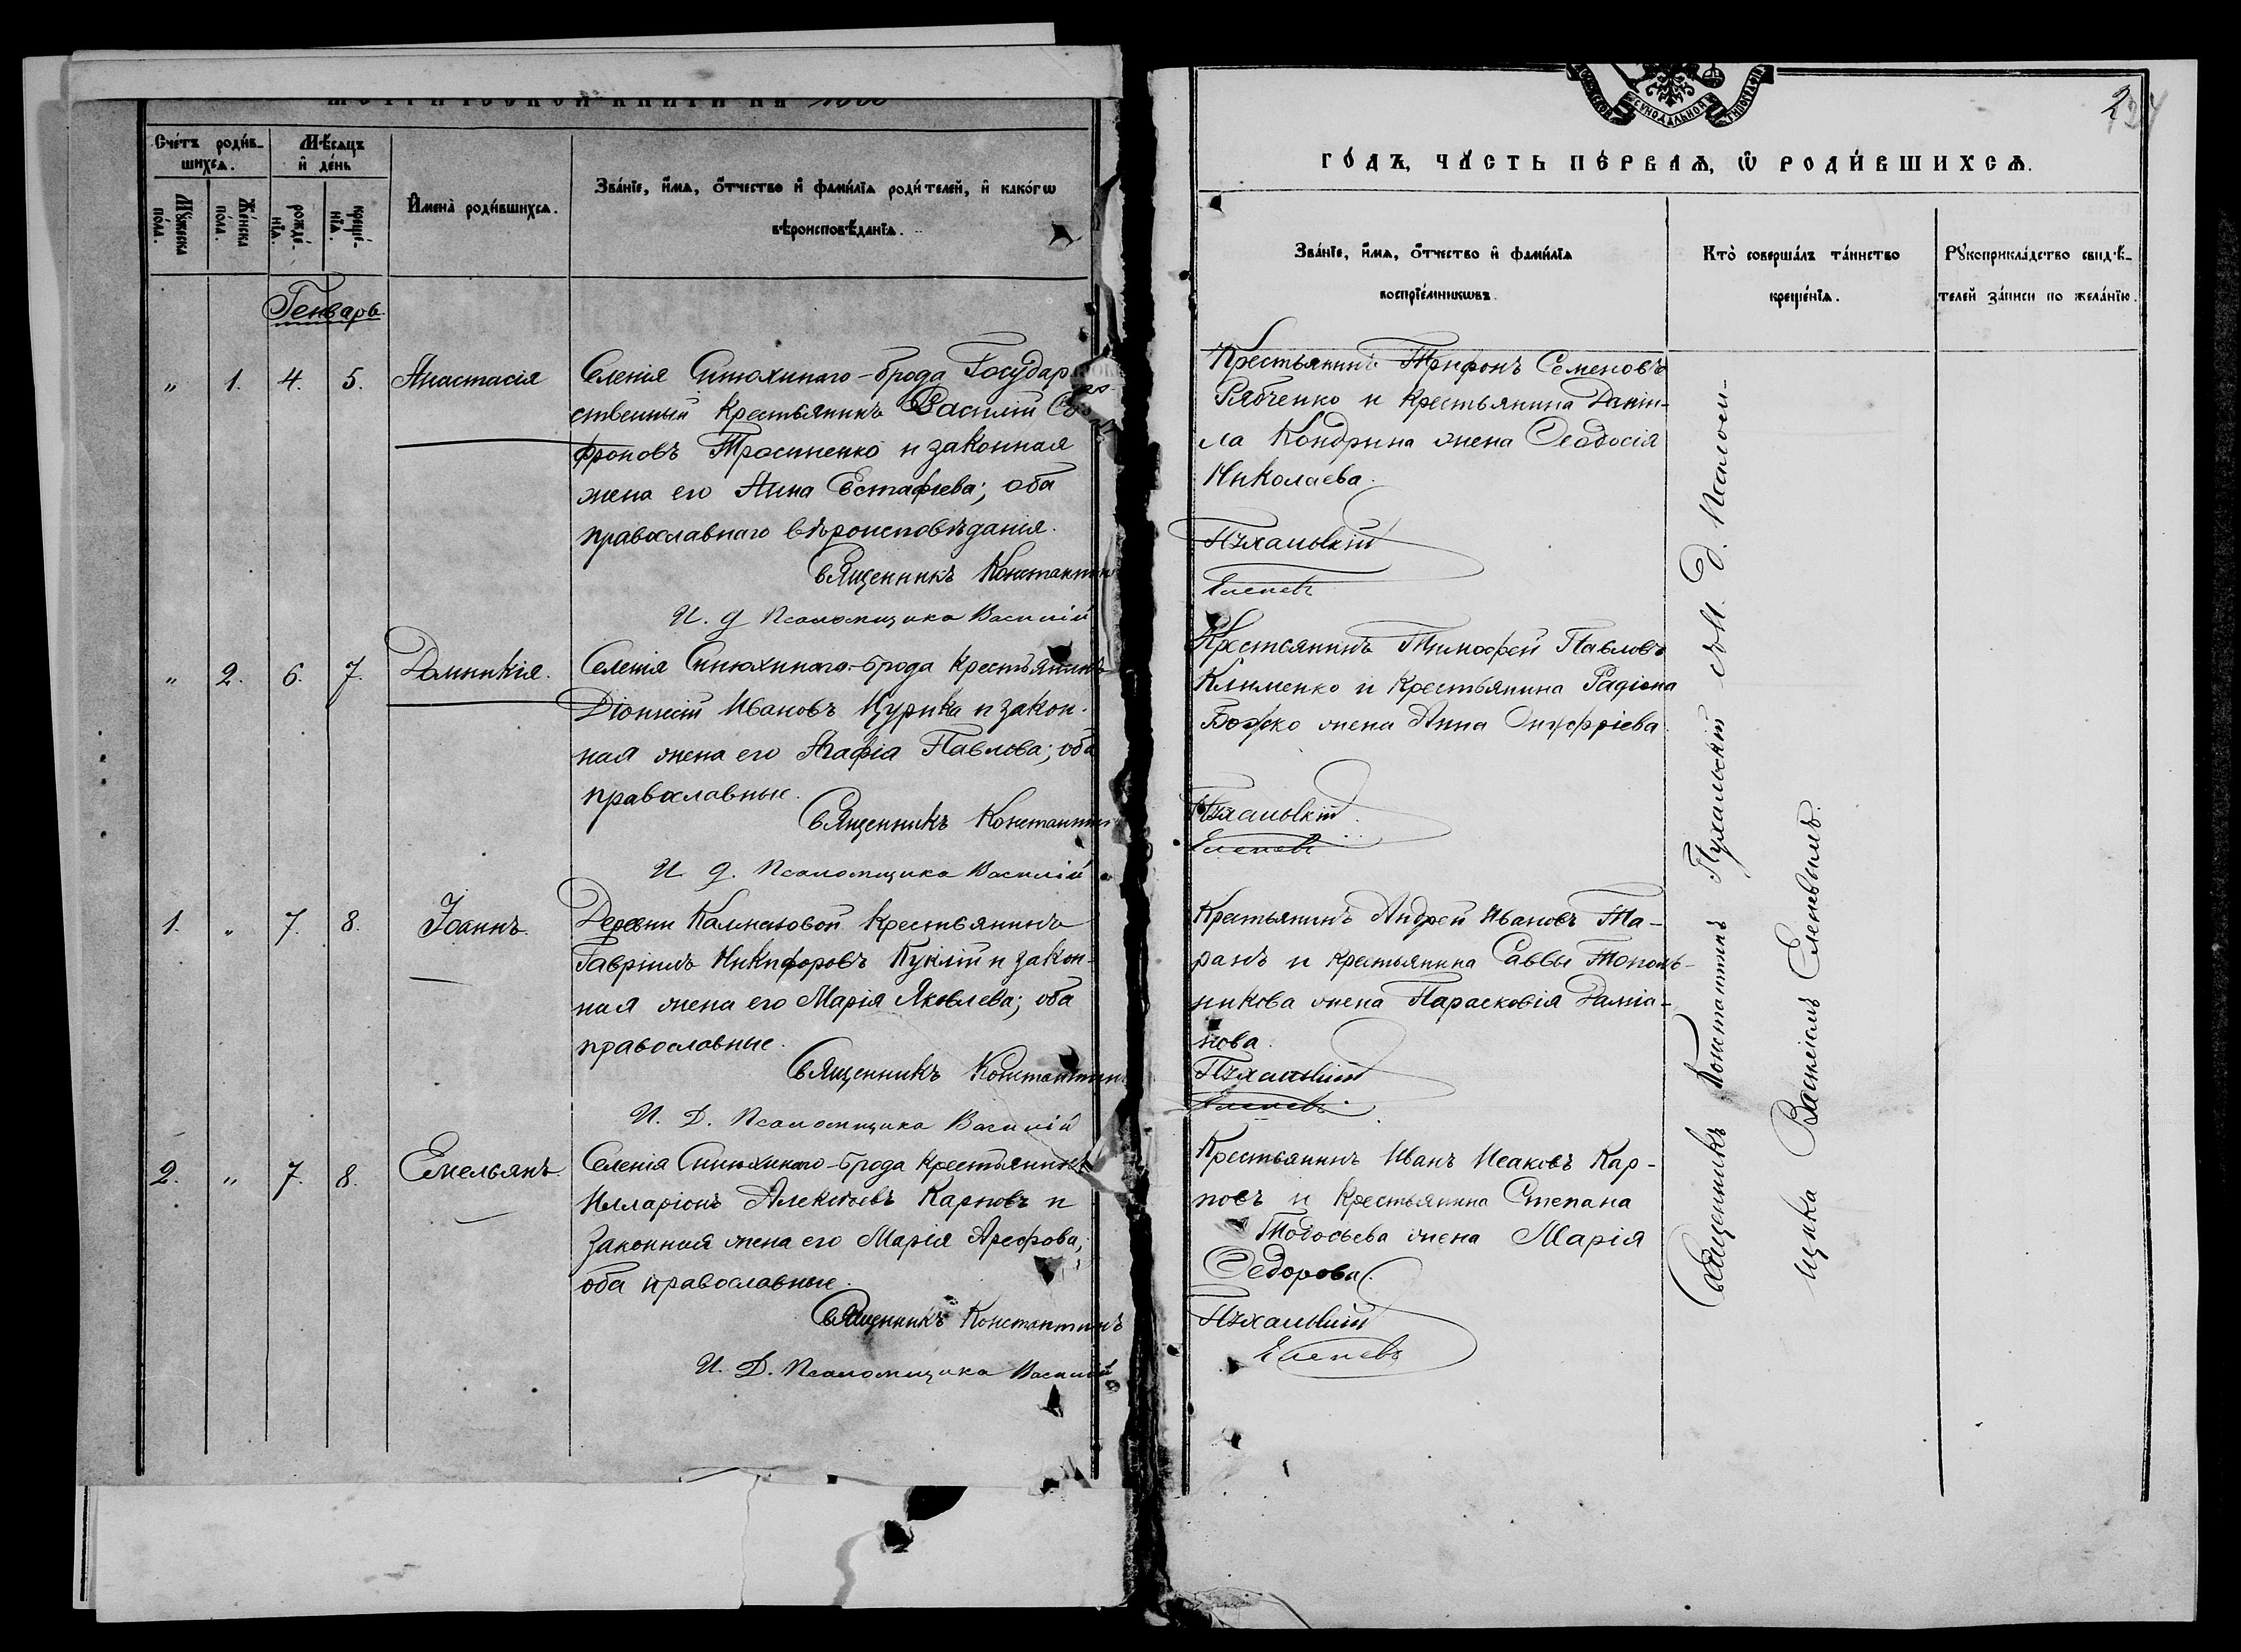 Счетъ родив-
шихся.
Мѣсяцъ
и день
Мужеска
пола.
Женска
пола.
рожде-
нія.
креще-
нія.
Имена родившихся.
Званіе, имя, отчество и фамилія родителей, и какого
вѣроисповѣданія.
Генварь
" 1. 4. 5. Анастасія
Селенія Синюхинаго-брода Государ
ственный Крестьянинъ Василій
фроновъ и законная
жена его Анна Естафіева; оба
православнаго вѣроисповѣданія.
Священникъ Константинъ
И. д Псаломщика Василій
" 2. 6. 7. Домникія.
Селенія Синюхинаго-брода крестьянинъ
Діонисій Ивановъ Цурика и закон-
ная жена его Агафіа Павлова; оба
православные.
Священникъ Константинъ
И д. Псаломщика Василій
1. " 7. 8. Іоаннъ.
Деревни Калмазовой Крестьянинъ
Гавріилъ Никифоровъ Куклій и закон-
ная жена его Марія Яковлева; оба
православные.
Священникъ Константинъ
И. Д. Псаломщика Василій
2. " 7. 8. Емельянъ.
Селенія Синюхинаго-брода Крестьянинъ
Илларіонъ Алексѣевъ Карповъ и
законная жена его Марія Арефова,
оба православные.
Священникъ Константинъ
И. Д. Псаломщика Василій
2
СѴНОДАЛЬНОЙ ТИПОГРАФІИ
годъ, часть первая, ѡ родившихся.
Званіе, имя, отчество и фамилія
воспріемниковъ.
Кто совершалъ таинство
крещенія.
Рукоприкладство свидѣ-
телей записи по желанію.
Крестьянинъ Трифонъ Семеновъ
Рябченко и Крестьянина Дании-
ла Кондрина жена Ѳеодосія
Николаева.
Пухальскій
Еленевъ
Крестьянинъ Тимофей Павловъ
Клименко и Крестьянина Радіона
Божко жена Анна Онуфріева.
Пухальскій
Еленевъ
Крестьянинъ Андрей Ивановъ Та-
ранъ и крестьянина Саввы Тополь-
никова жена Парасковія Даміа-
нова.
Пухальскій
Еленевъ
Крестьянинъ Иванъ Исаковъ Кар-
повъ и Крестьянина Степана
Тодосьева жена Марія
Ѳедорова.
Пухальскій
Еленевъ
Священникъ Константинъ Пухальскій съ И. д. Псалом-
щика Василіемъ Еленевымъ.